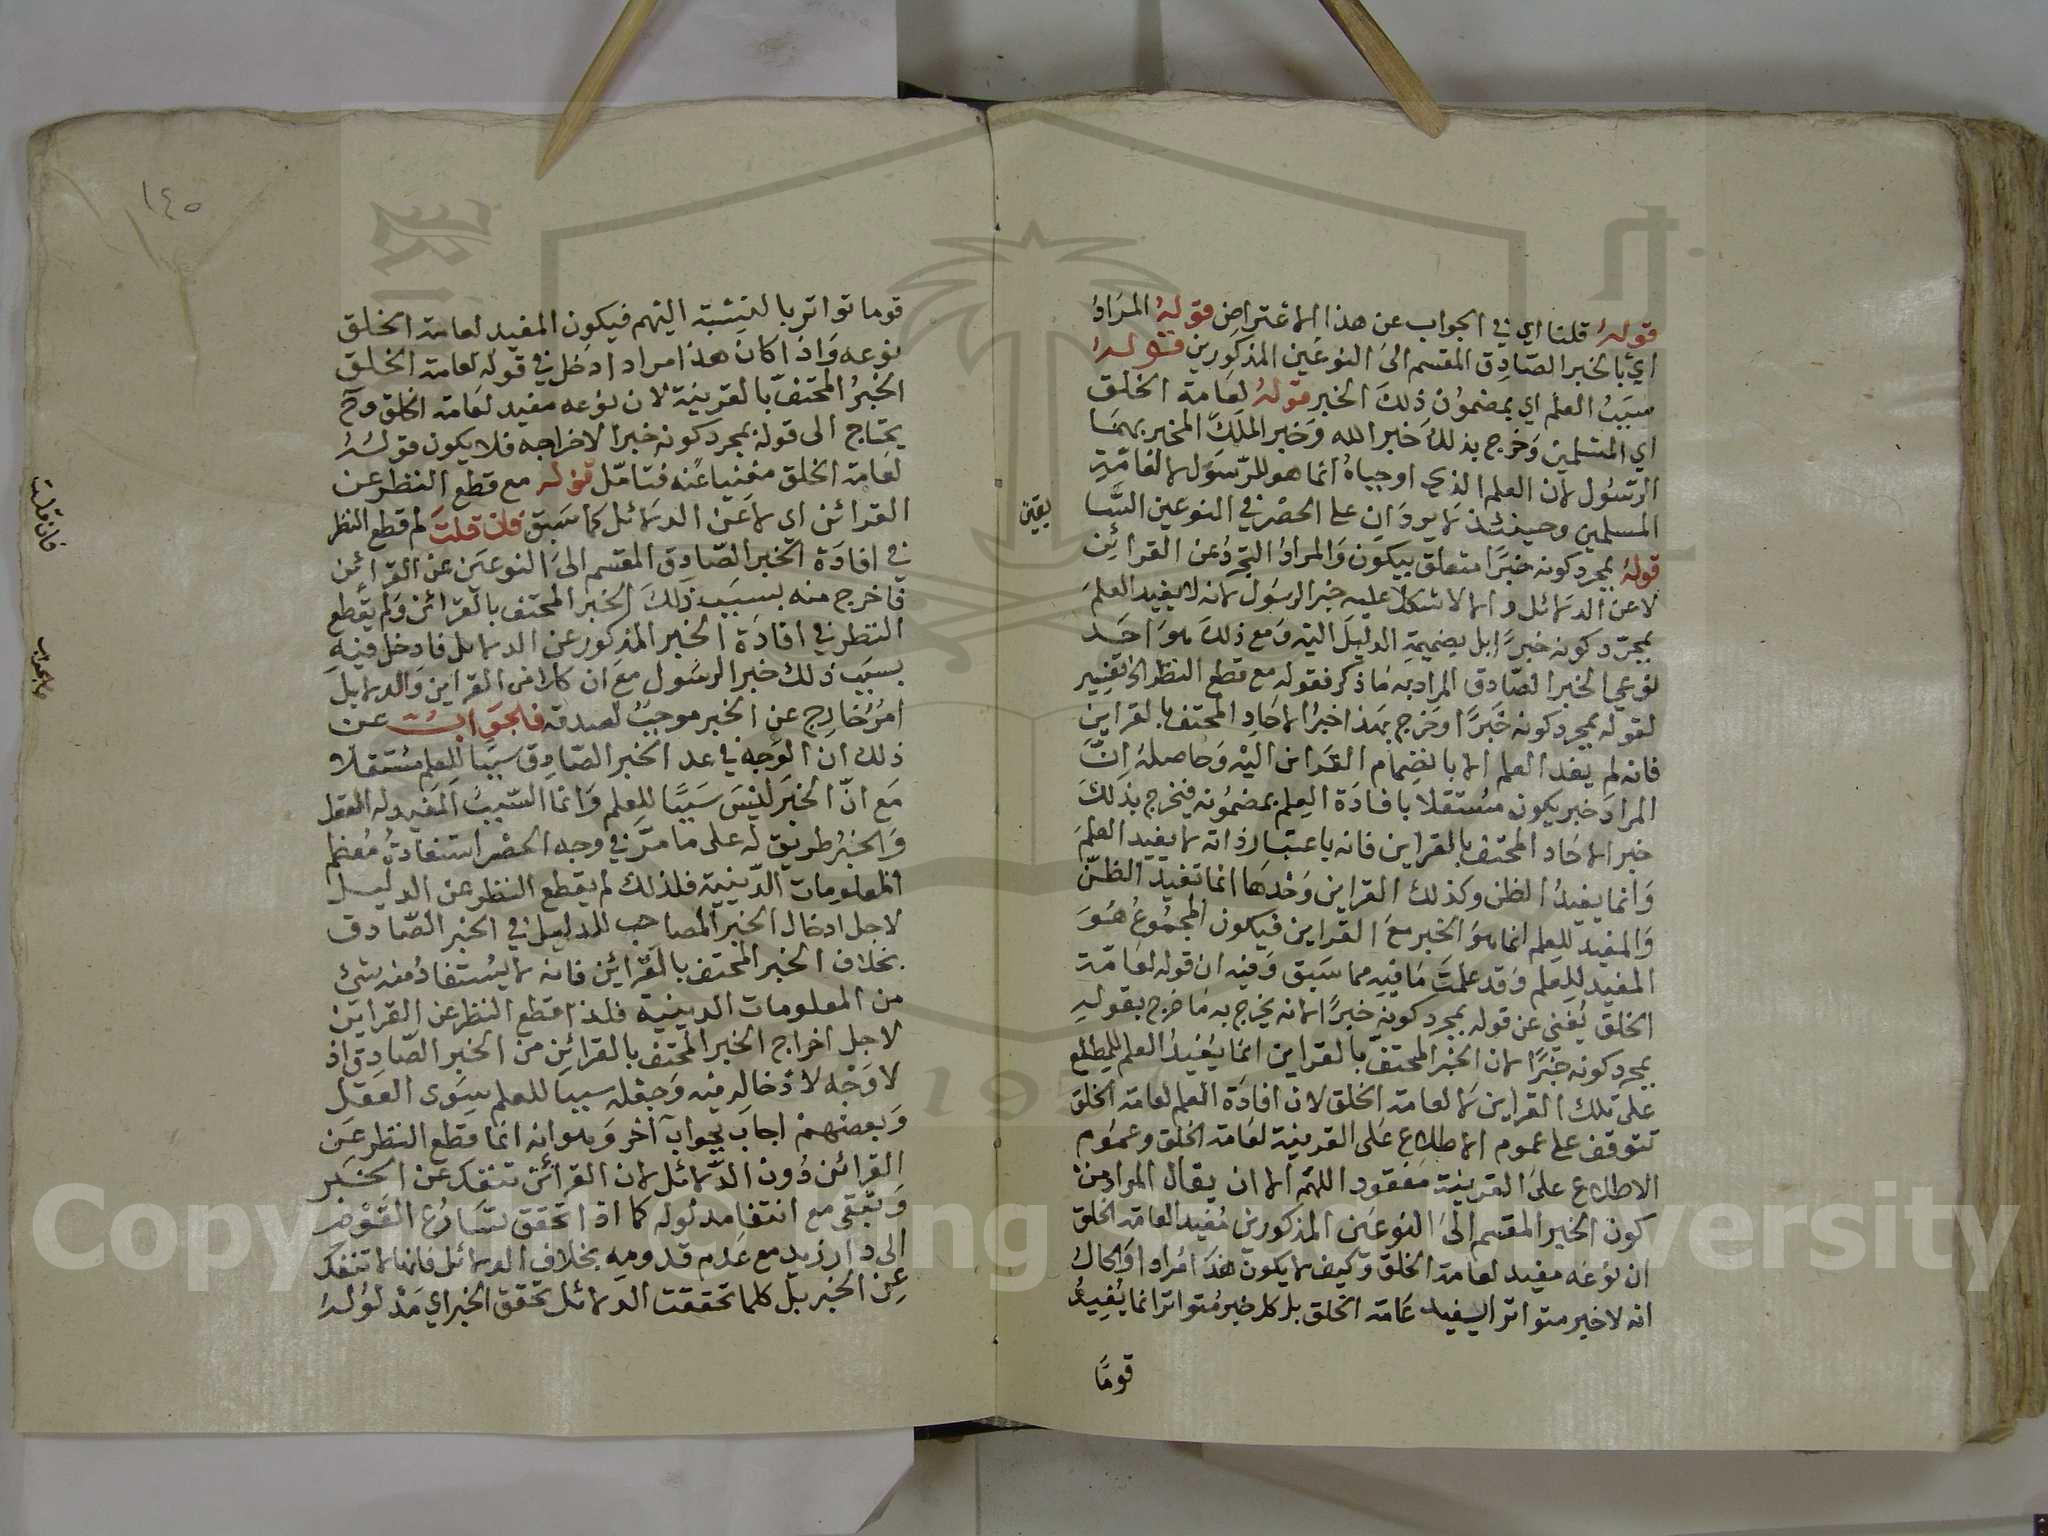 قوله قلنا اي في الجواب عن هذا الاعتراض قوله المراد
اي بالخبر الصادق المقسم الى النوعين المذكورين قوله
سبب العلم اي بمضمون ذلك الخبر قوله لعامة الخلق
اي المسلمين وخرج بذلك خبر الله وخبر الملك المخبر بهما
الرسول لان العلم الذي اوجباه انما هو للرسول لا لعامة
المسلمين وحينئذ لا يردان على الحصر في النوعين السا
بقين
قوله بمجرد كونه خبرا متعلق بيكون والمراد التجرد عن القرائن
لا عن الدلائل والا لاشكل عليه خبر الرسول لانه لا يفيد العلم
بمجرد كونه خبرا بل بضميمة الدليل اليه ومع ذلك هو احد
نوعي الخبر الصادق المراد به ما ذكر فقوله مع قطع النظر الخ تفسير
لقوله بمجرد كونه خبرا وخرج بهذا خبر الاحاد المحتف بالقراين
فانه لم يفد العلم الا بانضمام القراين اليه وحاصله ان
المراد خبر يكون مستقلا بافادة العلم بمضمونه فيخرج بذلك
خبر الاحاد المحتف بالقراين فانه باعتبار ذاته لا يفيد العلم
وانما يفيد الظن وكذلك القراين وحدها انما تفيد الظن
والمفيد للعلم انما هو الخبر مع القراين فيكون المجموع هو
المفيد للعلم وقد علمت ما فيه مما سبق وفيه ان قوله لعامة
الخلق يغني عن قوله بمجرد كونه خبرا لانه يخرج به ما خرج بقوله
بمجرد كونه خبرا لان الخبر المحتف بالقراين انما يفيد العلم للمطلع
على تلك القراين لا لعامة الخلق لان افادة العلم لعامة الخلق
تتوقف على عموم الاطلاع على القرينة لعامة الخلق وعموم
الاطلاع على القرينة مفقود اللهم الا ان يقال المراد من
كون الخبر المقسم الى النوعين المذكورين مفيد العامة الخلق
ان نوعه مفيد لعامة الخلق وكيف لا يكون هذا مرادا والحال
انه لا خبر متواتر اليفيد عامة الخلق بل كل خبر متواتر انما يفيد
قوما
١٤٥
قوما تواتر بالنسبة اليهم فيكون المفيد لعامة الخلق
نوعه واذا كان هذا مرادا دخل في قوله لعامة الخلق
الخبر المحتف بالقرينة لان نوعه مفيد لعامة الخلق وح
يحتاج الى قوله بمجرد كونه خبرا لاخراجه فلا يكون قوله
لعامة الخلق مغنيا عنه فتامل قوله مع قطع النظر عن
القرائن اي لا عن الدلائل كما سبق فان قلت لم قطع النظر
في افادة الخبر الصادق المقسم الى النوعين عن القرائن
فاخرج منه بسبب ذلك الخبر المحتف بالقرائن ولم يقطع
النظر في افادة الخبر المذكور عن الدلائل فادخل فيه
بسبب ذلك خبر الرسول مع ان كلا من القراين والدلايل
امر خارج عن الخبر موجب لصدقه فالجواب عن
ذلك ان الوجه في عد الخبر الصادق سببا للعلم مستقلا
مع ان الخبر ليس سببا للعلم وانما السبب المفيد له العقل
والخبر طريق له على ما مر في وجه الحصر استفادة معظم
المعلومات الدينية فلذلك لم يقطع النظر عن الدليل
لاجل ادخال الخبر المصاحب للدليل في الخبر الصادق
بخلاف الخبر المحتف بالقرائن فانه لا يستفاد منه شئ
من المعلومات الدينية فلذا قطع النظر عن القراين
لاجل اخراج الخبر المحتف بالقرائن من الخبر الصادق اذ
لا وجه لادخاله فيه وجعله سببا للعلم سوى العقل
وبعضهم اجاب بجواب آخر وهو انه انما قطع النظر عن
القرائن دون الدلائل لان القرائن تنفك عن الخبر
وتبقى مع انتفا مدلوله كما اذا تحقق تسارع القوم
الى دار زيد مع عدم قدومه بخلاف الدلائل فانها لا تنفك
عن الخبر بل كلما تحققت الدلائل تحقق الخبر اي مدلوله
فان قلت
فالجواب
Copyright © King Saud University
1957